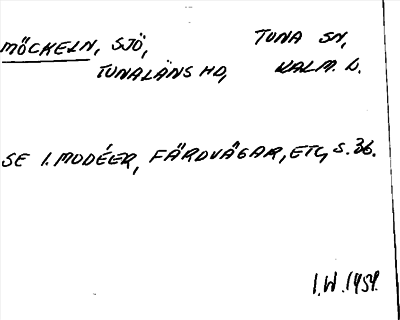 MÖCKELN, SJÖ, TUNA SN,
TUNALÄNS HD, KALM. L.
SE I. MODÉER, FÄRDVÄGAR, ETC, S. 36.
I.W. 1959.